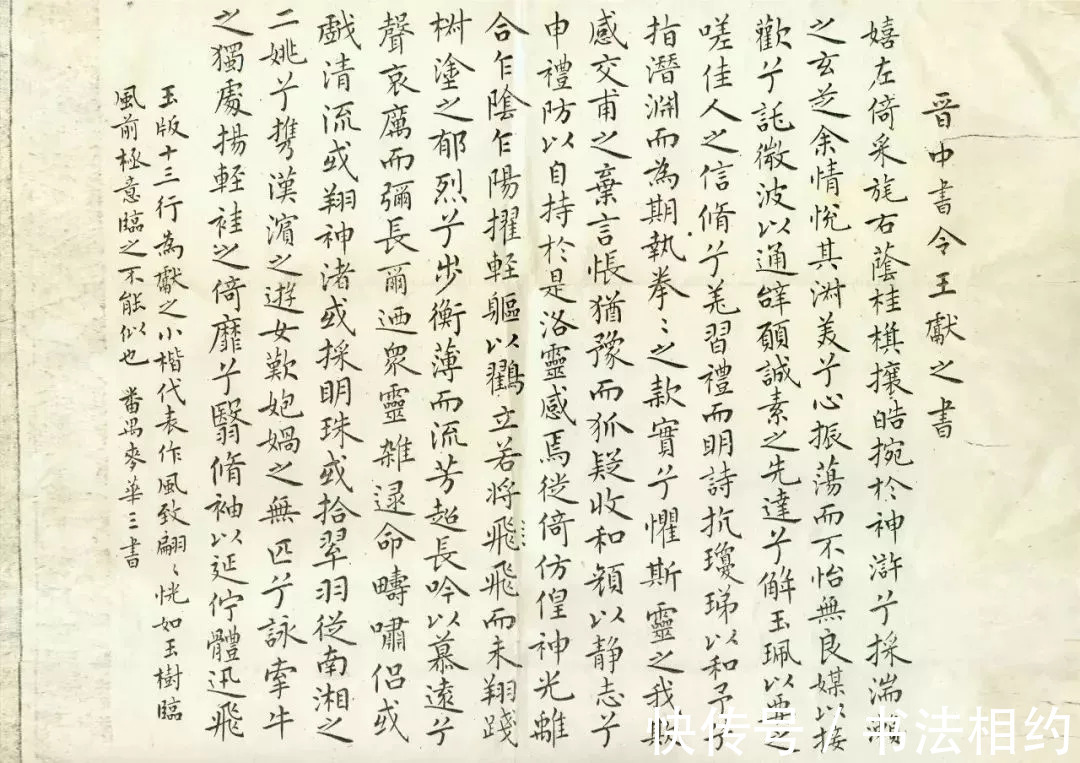 晉中書令王獻之書
嬉左倚采旄右蔭桂棋攘皓捥於神滸兮採湍瀨
之玄芝余情悅其淑美兮心振蕩而不怡無良媒以接
歡兮託微波以通辝願誠素之先達兮解玉珮以要之
嗟佳人之信脩兮羌習禮而明詩抗瓊珶以和予兮
指潛淵而為期執拳〻之款實兮懼斯靈之我欺
感交甫之棄言悵猶豫而狐疑收和顏以静志兮
申禮防以自持於是洛靈感焉徙倚仿偟神光離
合乍陰乍陽擢軽軀以鸖立若將飛飛而未翔踐
樹塗之郁烈兮步衡薄而流芳超長吟以慕遠兮
聲哀厲而彌長爾迺衆靈雜遝命疇嘯侣或
戯清流或翔神渚或採明珠或拾翠羽従南湘之
二姚兮携漢濱之遊女歎匏媧之無匹兮詠牽牛
之獨處揚軽袿之倚靡兮翳脩袖以延佇體迅飛
玉版十三行為獻之小楷代表作風致翩〻恍如玉樹臨
風前極意臨之不能似也 番禺麥華三書
快传号/书法相约